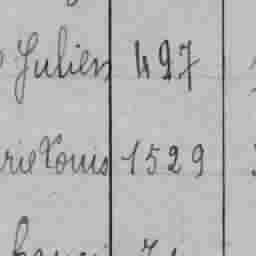 Julien 497
rie Louis 1529